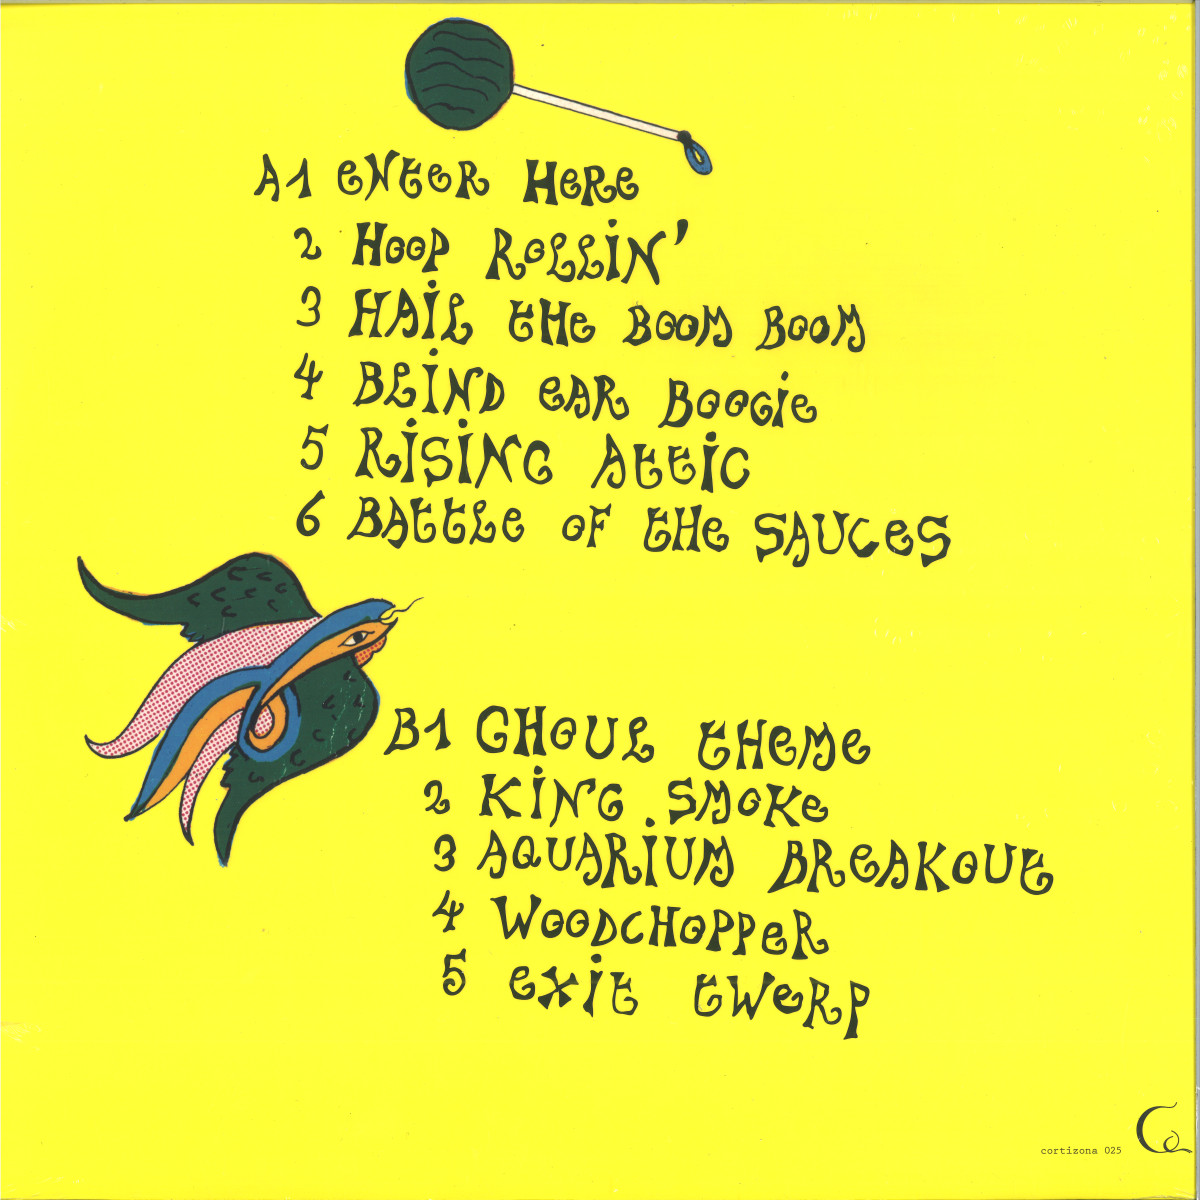 A1 ENTER HERE
2 HOOP ROLLIN'
3 HAIL THE BOOM BOOM
4 BLIND EAR BOOGIE
5 RISING ATTIC
6 BATTLE OF THE SAUCES
B1 GHOUL THEME
2 KING SMOKE
3 AQUARIUM BREAKOUT
4 WOODCHOPPER
5 EXIT TWERP
cortizona 025